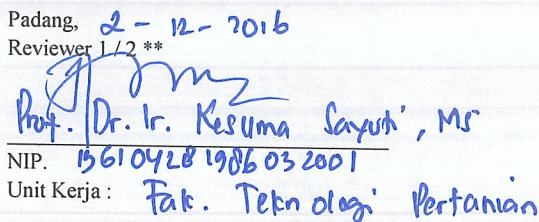 Padang, 2 - 12 - 2016
Reviewer 1 / 2 **
Prof. Dr. Ir. Kesuma Sayuti, MS
NIP. 19610428 198603 2001
Unit Kerja : Fak. Teknologi Pertanian